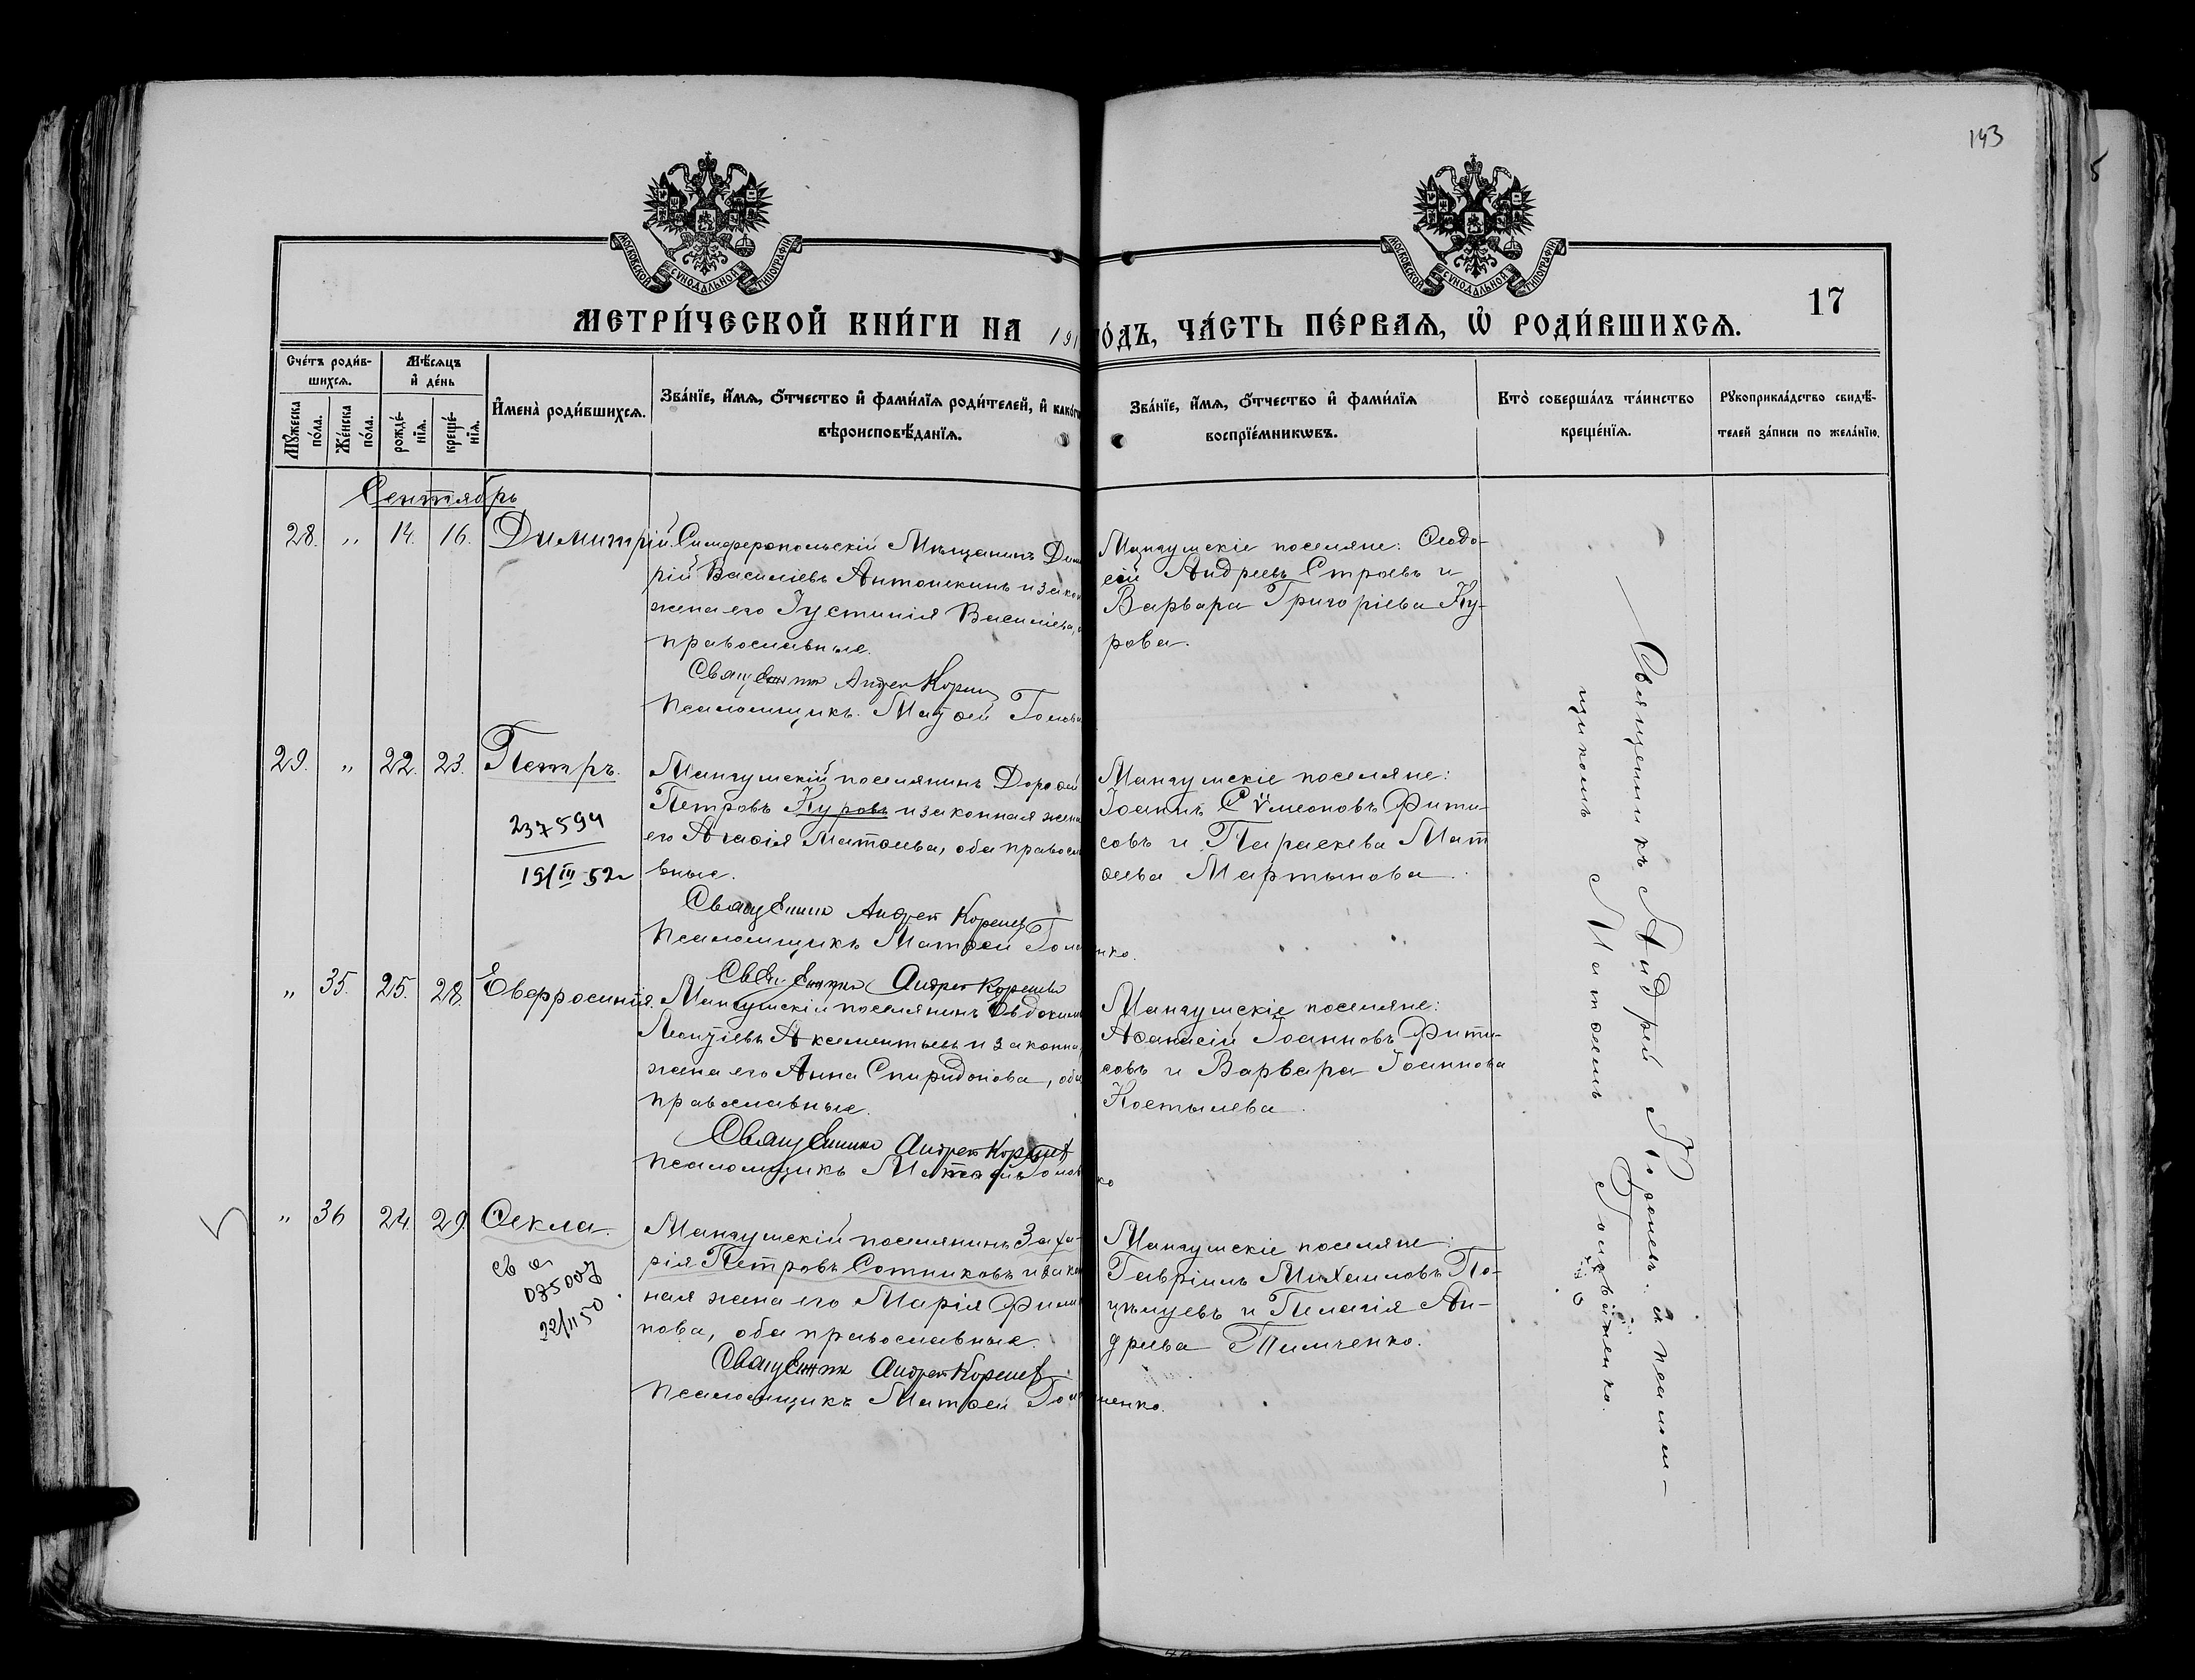 143
5
МОСКОВСКОЙ СѴНОДАЛЬНОЙ ТИПОГРАФІИ
МОСКОВСКОЙ СѴНОДАЛЬНОЙ ТИПОГРАФІИ
17
МЕТРИ́ЧЕСКОЙ КНИ́ГИ НА 191
О́ДЪ, ЧА́СТЬ ПЕ́РВАѦ, Ѡ҆ РОДИ́ВШИХСѦ.
Сче́тъ роди́в-
шихсѧ.
Мꙋ́жеска по́ла.
Же́нска по́ла.
Мѣ́сѧцъ и҆ де́нь
рожде́-нїѧ.
креще́-нїѧ.
И҆мена̀ роди́вшихсѧ.
Зва́нїе, и҆́мѧ, ѻ҆́тчество и҆ фами́лїѧ роди́телей, и҆ како́гѡ
вѣроисповѣ́данїѧ.
Зва́нїе, и҆́мѧ, ѻ҆́тчество и҆ фами́лїѧ
воспрїе́мникѡвъ.
Кто̀ соверша́лъ та́инство
креще́нїѧ.
Рꙋкоприкла́дство свидѣ́-
телей за́писи по жела́нїю.
Сентябрь
28. " 14. 16. Димитрій.
Симферопольскій Мѣщанинъ Дим
рій Василіевъ Антошкинъ и закон
жена его Іустинія Василіева, о
православные.
Священник Андрей Корнев
Псаломщикъ Матѳей Голов
Мангушскіе поселяне: Ѳеодо-
сій Андреевъ Строевъ и
Варвара Григоріева Ку-
рова.
29. " 22. 23. Петръ.
237594
19/III 52г
Мангушскій поселянинъ Дороѳей
Петровъ Куровъ и законная жена
его Агаѳія Матѳеева, оба правосла
вные.
Священник Андрей Корнев
Псаломщикъ Матѳей Голо
нко.
Мангушскіе поселяне:
Іоаннъ Сѵмеоновъ Фити-
совъ и Параскева Мат
ѳеева Мартынова.
" 35. 25. 28. Евфросинія.
Священник Андрей Корнев
Мангушскій поселянинъ Евдокимъ
Леонтіевъ Аксментьевъ и законна
жена его Анна Спиридонова, оба
православные.
Священник Андрей Корнев
Псаломщикъ Матѳей Голов
ко
Мангушскіе поселяне:
Аѳанасій Іоанновъ Фити-
совъ и Варвара Іоаннова
Костылева.
" 36 24. 29. Ѳекла.
св о
22/II 50
Мангушскій поселянинъ Заха-
рія Петровъ Сотниковъ и закон
ная жена его Марія Фили
пова, оба православные.
Священник Андрей Корнев
Псаломщикъ Матѳей Голо
ненко.
Мангушскіе поселяне:
Гавріилъ Михаиловъ По-
цѣлуевъ и Пелагія Ан-
дреева Пимченко.
Священникъ Андрей Корневъ съ псалом-
щикомъ Матѳеемъ Головненко.